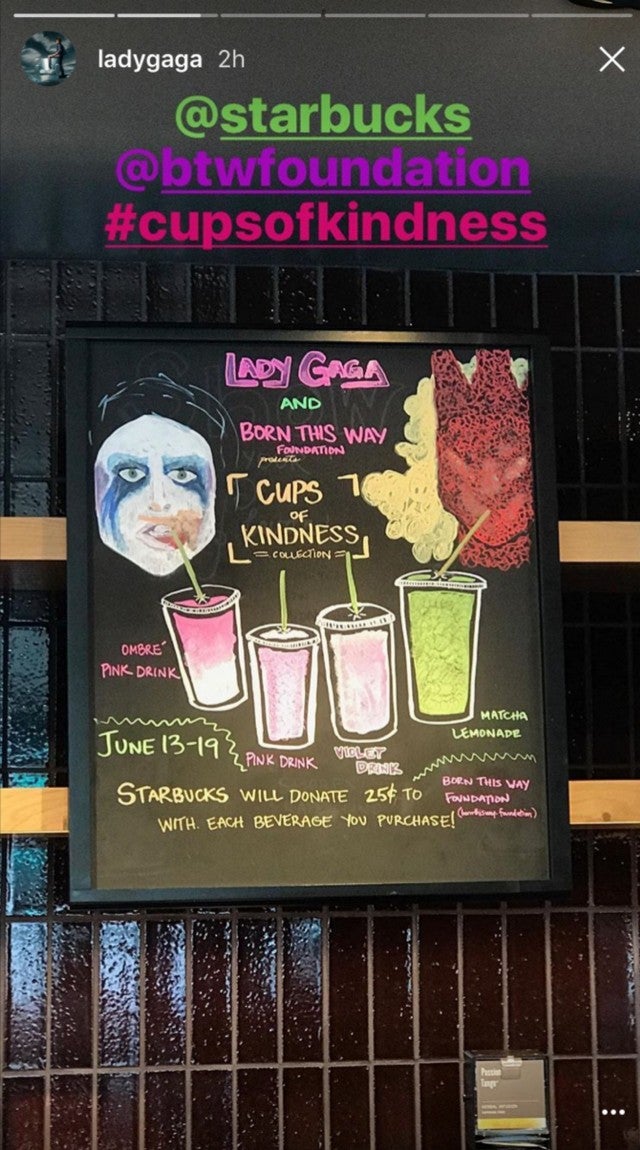 ladygaga 2h
@starbucks
@btwfoundation
#cupsofkindness
LADY GAGA
AND
BORN THIS WAY
FOUNDATION
presents
CUPS
OF
KINDNESS
COLLECTION
OMBRE
PINK DRINK
MATCHA
LEMONADE
JUNE 13-19
PINK DRINK
VIOLET
DRINK
BORN THIS WAY
FOUNDATION
(bornthisway.foundation)
STARBUCKS WILL DONATE 25¢ TO
WITH EACH BEVERAGE YOU PURCHASE!
Passion
Tango